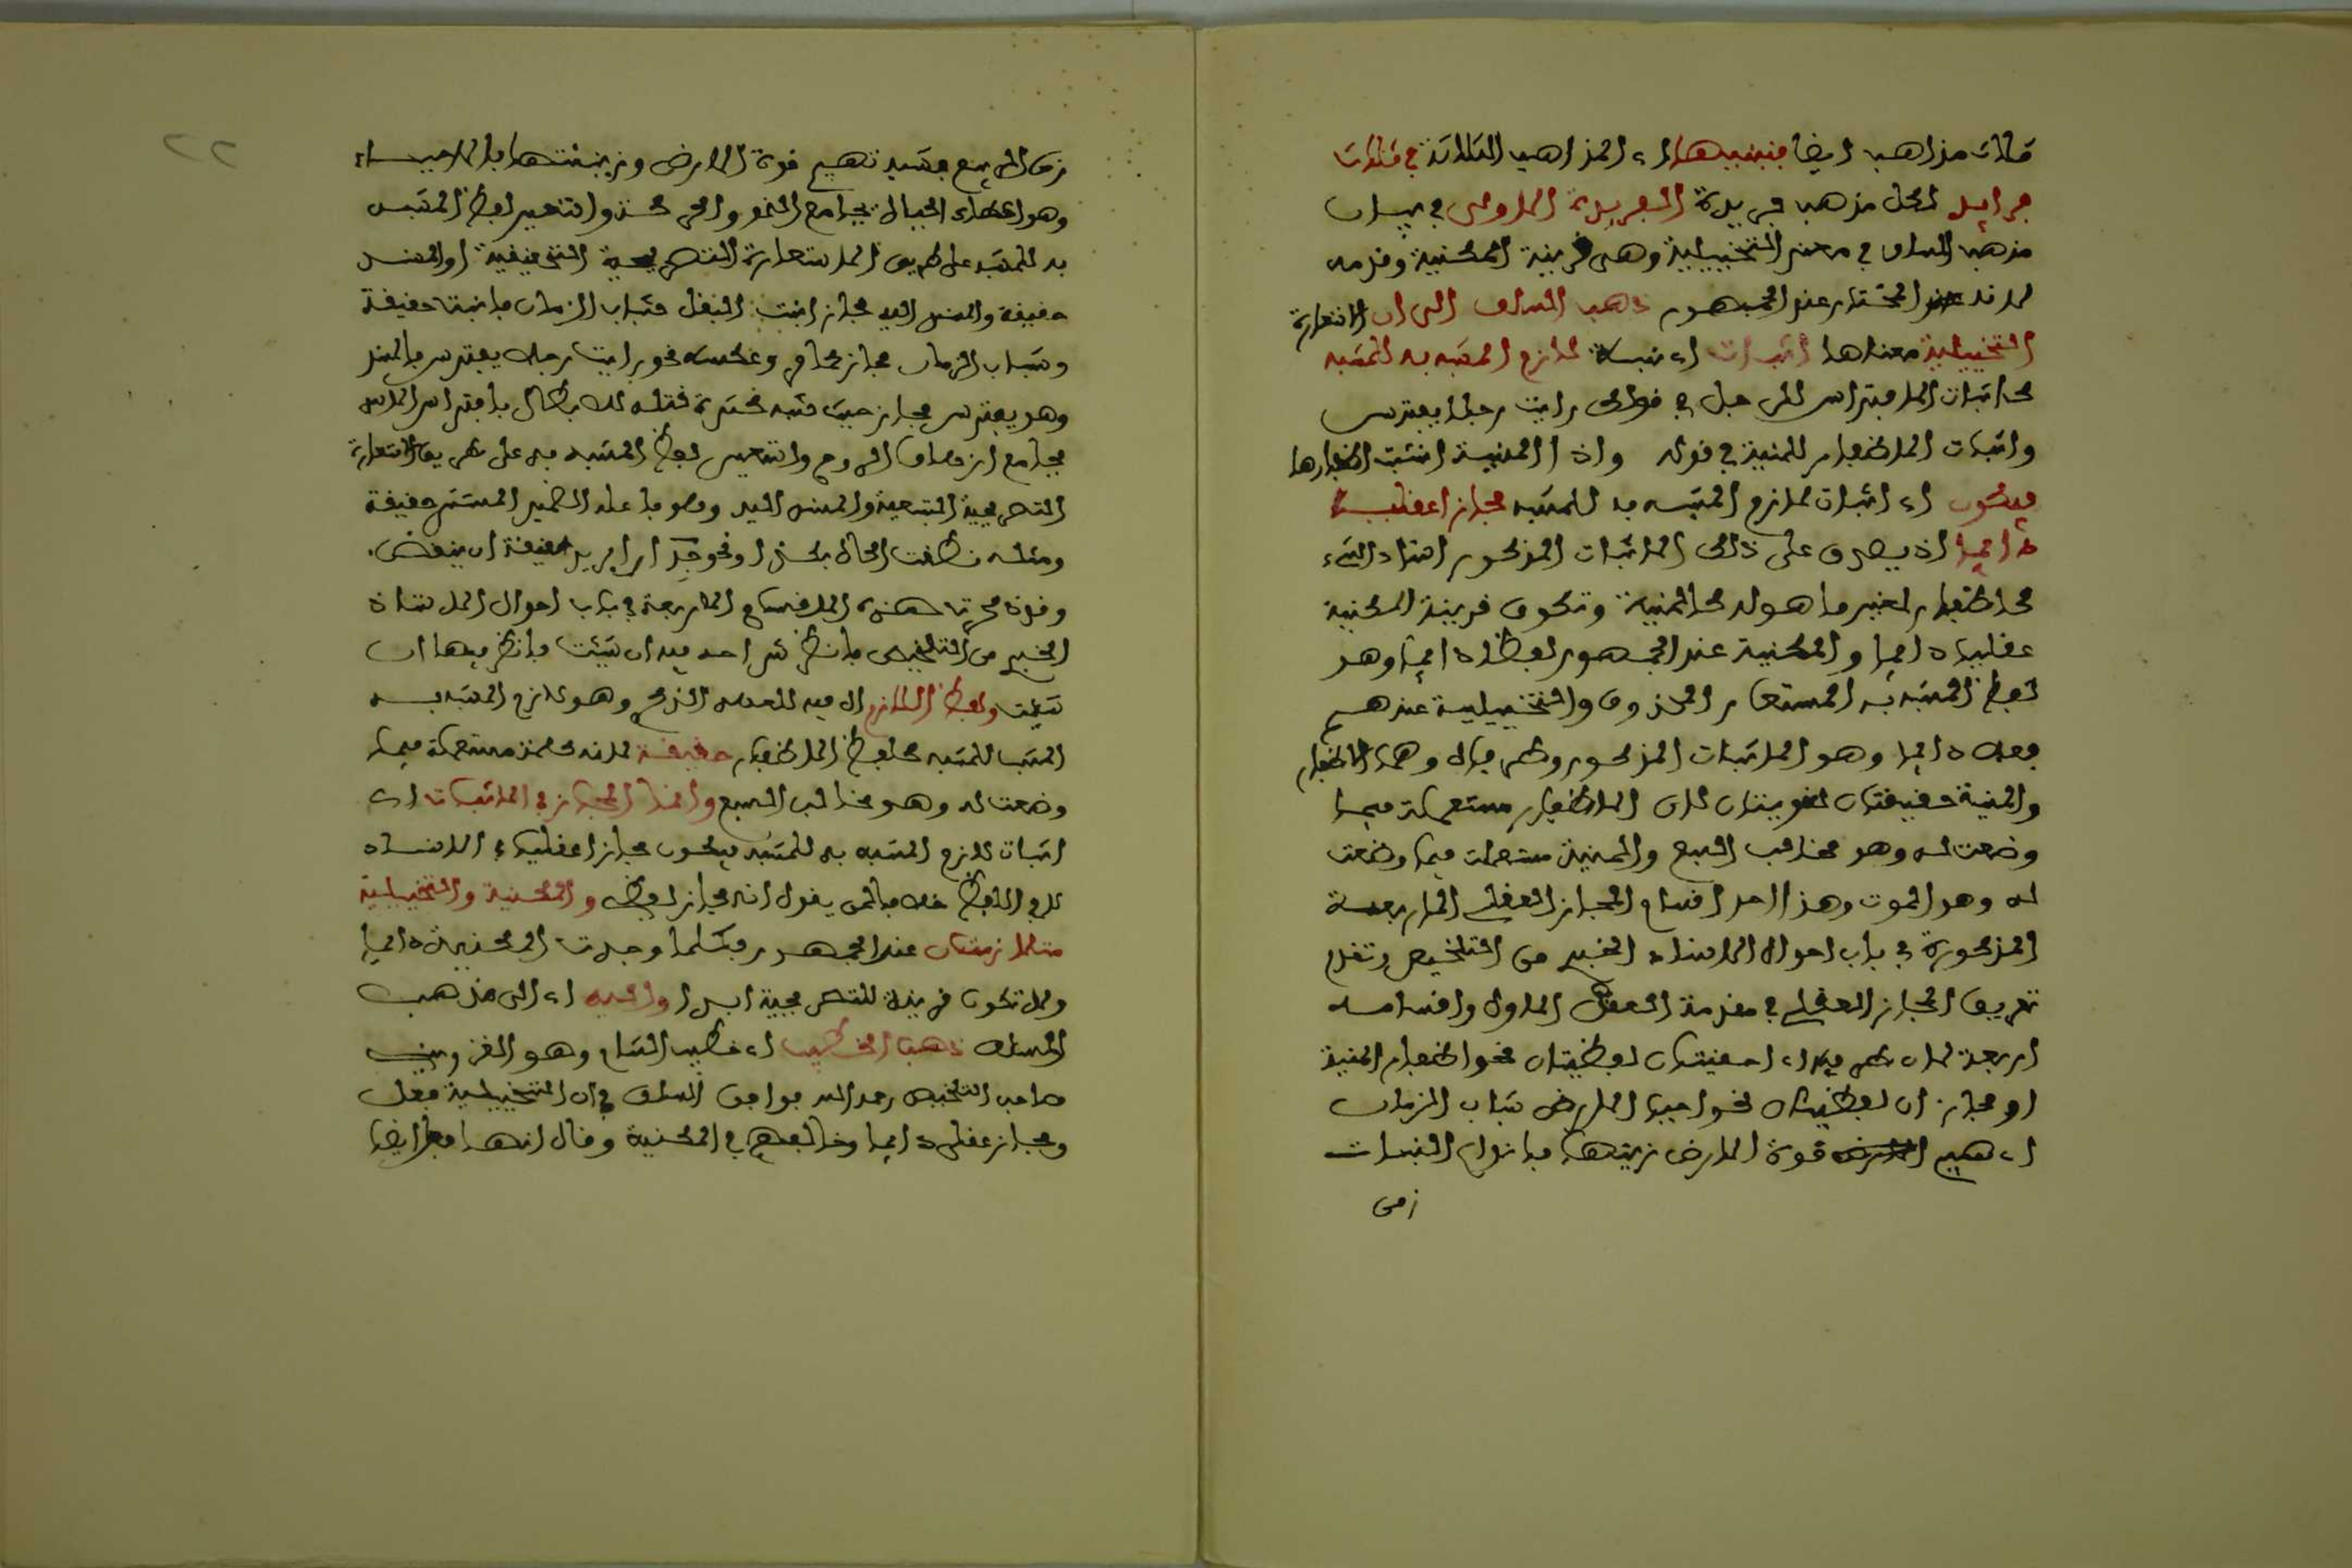 ثلاث مذاهب ايضا فنبينها اي المذاهب الثلاثة في ثلاث
فرايد لكل مذهب فريدة الفريدة الاولى في بيان
مذهب السلف في معنى التخييلية وهي قرينة المكنية وقدمه
لانه المختار عند الجمهور ذهب السلف الى ان الاستعارة
التخييلية معناها اثبات اي نسبة لازم المشبه به للمشبه
كاثبات الافتراس للرجل في قولك رايت رجلا يفترس
واثبات الاظفار للمنية في قوله واذا المنية انشبت اظفارها
فيكون اي اثبات لازم المشبه به للمشبه مجازا عقليا
دايما اذ يصدق على ذلك الاثبات المذكور اسناد الشيء
كالاظفار لغير ما هو له كالمنية وتكون قرينة المكنية
عقلية دايما والمكنية عند الجمهور لفظا دايما وهو
لفظ المشبه به المستعار المحذوف والتخييلية عندهم
فعل دايما وهو الاثبات المذكور وطرفاه وهما الاظفار
والمنية حقيقتان لغويتان لان الاظفار مستعملة فيما
وضعت له وهو مخالب السبع والمنية مستعملت فيما وضعت
له وهو الموت وهذا احد اقسام المجاز العقلي الاربعة
المذكورة في باب احوال الاسناد الخبري من التلخيص وتقدم
تعريف المجاز العقلي في مقدمة العقد الاول واقسامه
اربعة لان طرفيه اي حقيقتان لفظيتان نحو اظفار المنية
او مجازان لفظيتان نحو احيا الارض شباب الزمان
اي هيج قوة الارض زينتها بانواع النبات
زمن
زمن الربيع فشبه تهييج قوة الارض وزينتها بالاحياء
وهو اعطاء الحياة بجامع النمو والحسن واستعير لفظ المشبه
به للمشبه على طريق الاستعارة التصريحية التحقيقية او المسند
حقيقة والمسند اليه مجاز انبت البقل شباب الزمان فانبت حقيقة
وشباب الزمان مجاز وعكسه نحو رايت رجلا يفترس
وهو يفترس مجاز حيث شبه كثرة قتله للابطال بافتراس الاسد
بجامع ازهاق الروح واستعير لفظ المشبه به على طريق الاستعارة
التصريحية التبعية والمسند اليه وهو فاعله الضمير المستتر حقيقة
ومثله نطقت الحال بكذا ونحو جدارا يريد حقيقة ان ينقض
وقد هذه الاقسام الاربعة في باب احوال الاسناد
الخبري من التلخيص فانظر فيه ان شئت فانظر فيها ان
شئت ولفظ اللازم ال فيه للعهد الذكري وهو لازم المشبه به
المثبت للمشبه كلفظ الاظفار حقيقة لانه كلمة مستعملة فيما
وضعت له وهو مخالب السبع وانما المجاز في الاثبات اي
اثبات لازم المشبه به للمشبه فيكون مجازا عقليا الاسناد
لا في اللفظ خلافا لمن يقول انه مجاز لفظي والمكنية والتخييلية
متلازمتان عند الجمهور فكلما وجدت المكنية دايما
ولا تكون قرينة للتصريحية ابدا واليه اي الى مذهب
السلف ذهب الخطيب اي خطيب الشام وهو القزويني
صاحب التلخيص رحمه الله فوافق السلف في ان التخييلية فعل
ومجاز عقلي دايما وخالفهم في المكنية وقال انها فعل ايضا
٢٢